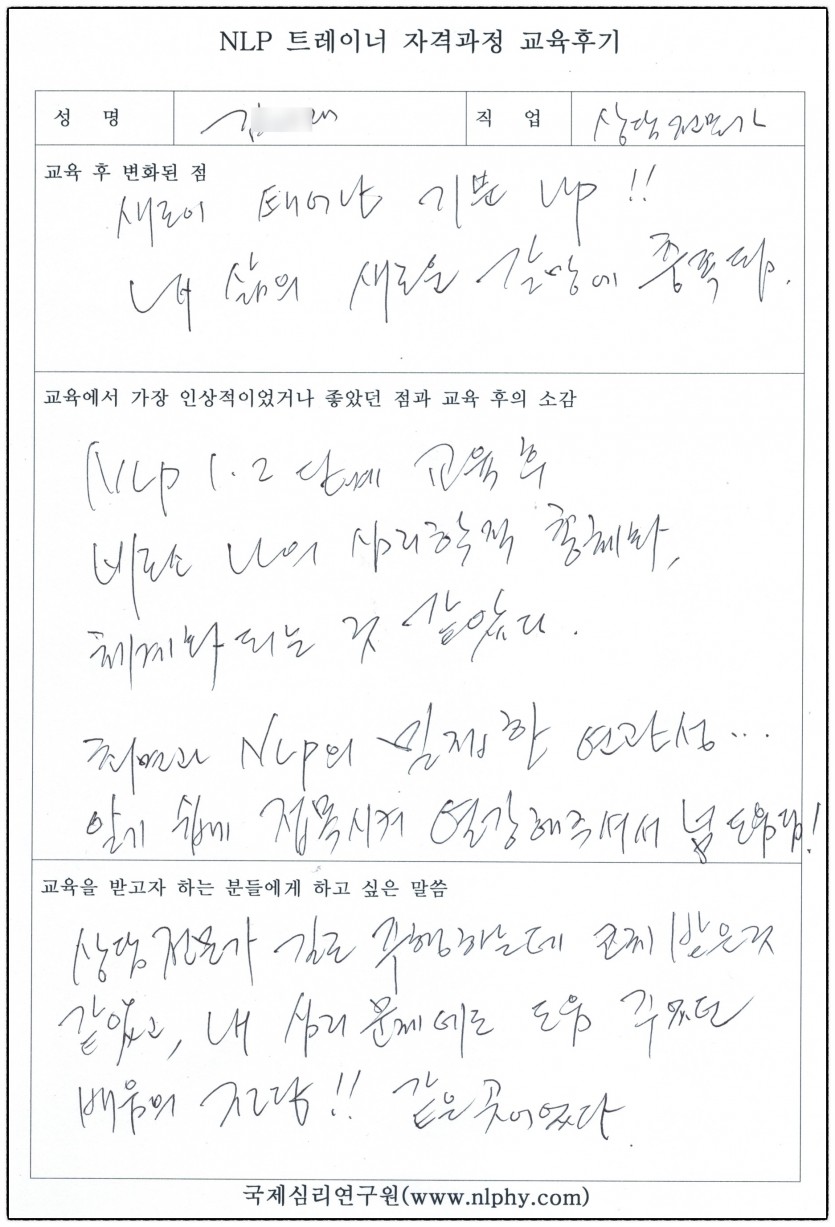 NLP 트레이너 자격과정 교육후기
성 명 김 직 업 상담전문가
교육 후 변화된 점
새로이 태어난 기분 up !!
내 삶의 새로운 갈망에 증폭됨.
교육에서 가장 인상적이었거나 좋았던 점과 교육 후의 소감
NLP 1.2 단계 교육 후
비로소 나의 심리학적 형체화,
체계화 되는 것 같았다.
최면과 NLP의 밀접한 연관성...
알기 쉽게 접목시켜 열강해주셔서 넘 도움됨!
교육을 받고자 하는 분들에게 하고 싶은 말씀
상담전문가 길로 주행하는데 코치 받은것
같았고, 내 심리 문제에도 도움 주었던
배움의 전당!! 같은 곳이었다.
국제심리연구원(www.nlphy.com)